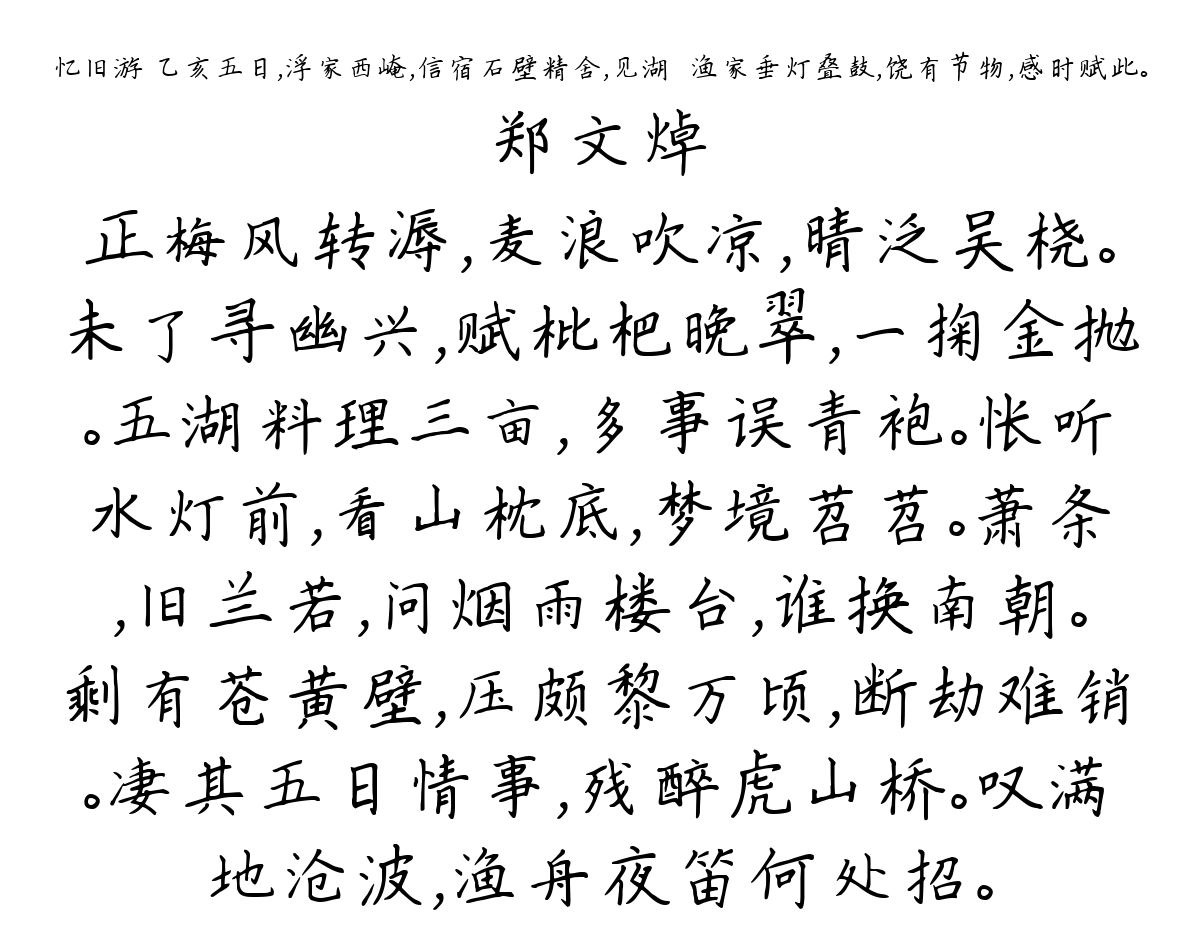 忆旧游 乙亥五日,浮家西崦,信宿石壁精舍,见湖 渔家垂灯叠鼓,饶有节物,感时赋此。
郑文焯
正梅风转溽,麦浪吹凉,晴泛吴桡。
未了寻幽兴,赋枇杷晚翠,一掬金抛
。五湖料理三亩,多事误青袍。怅听
水灯前,看山枕底,梦境苕苕。萧条
,旧兰若,问烟雨楼台,谁换南朝。
剩有苍黄壁,压颇黎万顷,断劫难销
。凄其五日情事,残醉虎山桥。叹满
地沧波,渔舟夜笛何处招。